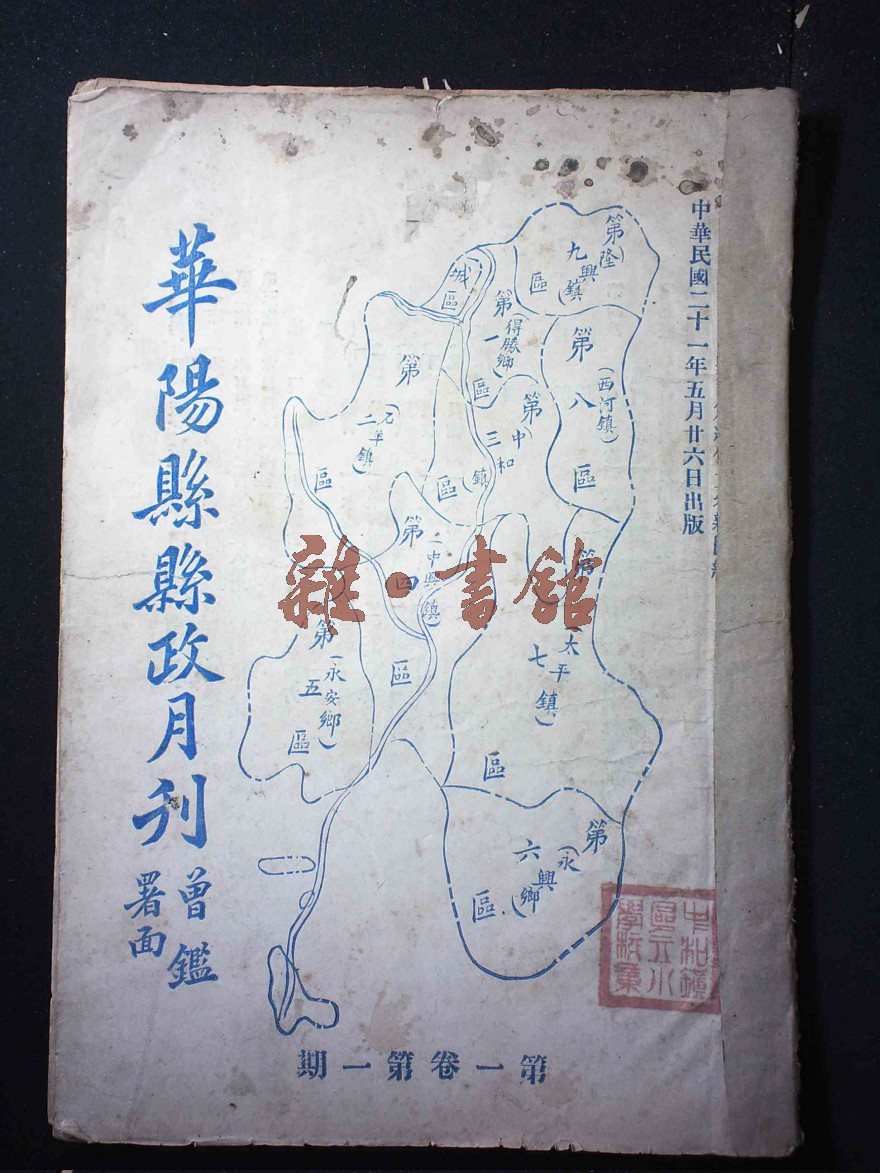 中華民國二十一年五月廿六日出版
華陽縣縣政月刊
曾鑑
署面
城區
第九區
(隆興鎮)
第一區
(得勝鄉)
第八區
(西河鎮)
第二區
(石羊鎮)
第三區
(中和鎮)
第四區
(中興鎮)
第七區
(太平鎮)
第五區
(永安鄉)
第六區
(永興鄉)
第一卷第一期
雜·書館
中和鎮
區立小
學校